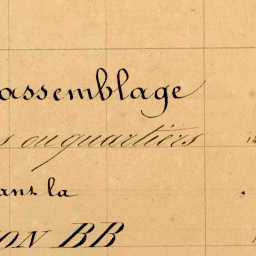 assemblage
s ou quartiers
ans la
ON BB